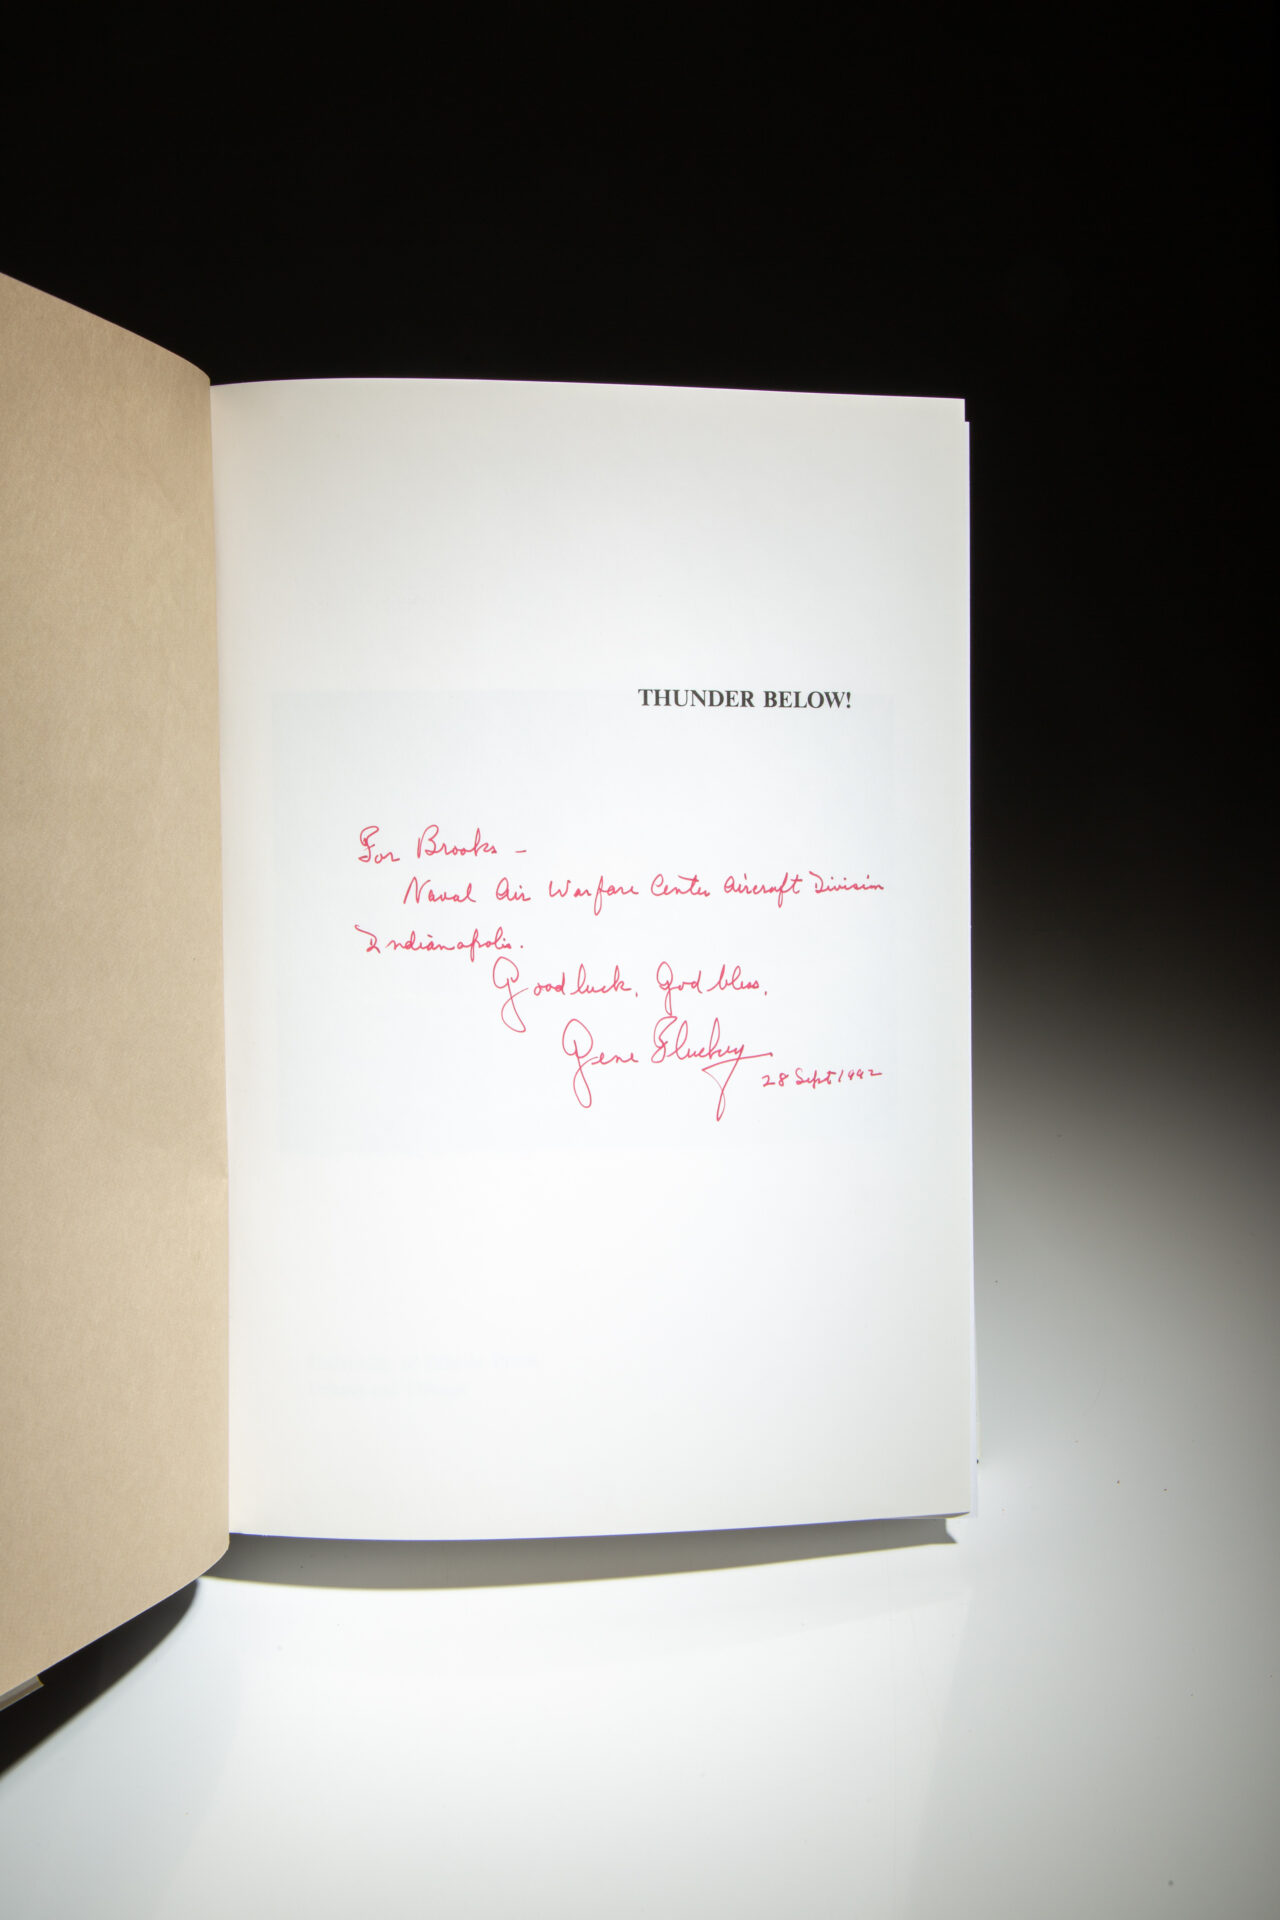 THUNDER BELOW!
For Brooks –
Naval Air Warfare Center Aircraft Division
Indianapolis.
Good luck, God bless,
Gene Fluckey
28 Sept 1992